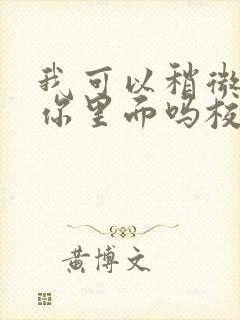 我可以稍微
你里而吗板
黄博文